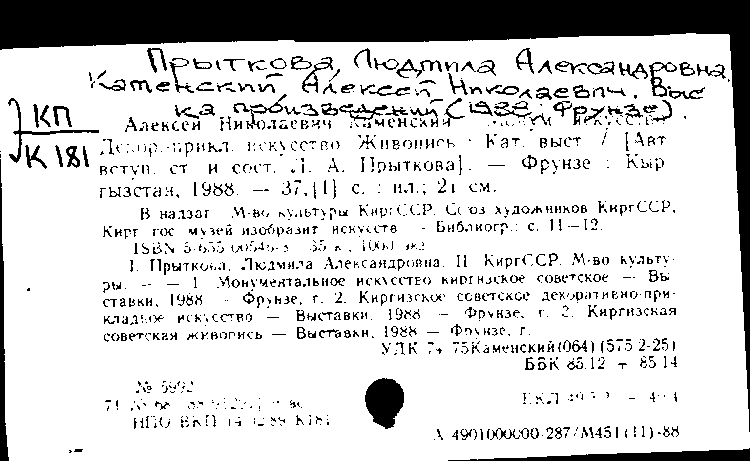 Прыткова, Людмила Александровна.
Каменский, Алексей Николаевич. Выс
ка произведений (1988 ; Фрунзе)
КП
К 181
Алексей Николаевич Каменский
Декор.-прикл. искусство Живопись : Кат. выст / [Авт
вступ. ст и сост. Л. А. Прыткова]. — Фрунзе : Кыр
гызстан, 1988. — 37,[1] с. : ил.; 21 см.
В надзаг М-во культуры КиргССР, Союз художников КиргССР,
Кирг гос музей изобразит искусств - Библиогр.: с. 11—12.
ISBN
I. Прыткова, Людмила Александровна. II КиргССР. М-во культу-
ры. — — 1 Монументальное искусство киргизское советское — Вы
ставки, 1988 - Фрунзе, г. 2. Киргизское советское декоративно-при-
кладное искусство — Выставки, 1988 — Фрунзе, г. 2. Киргизская
советская живопись — Выставки, 1988 — Фрунзе, г.
УДК 75Каменский(064) (575 2-25)
ББК 85.12 + 85 14
№ 5992
НПО ВКП К181
А 4901000000-287/М451(11)-88